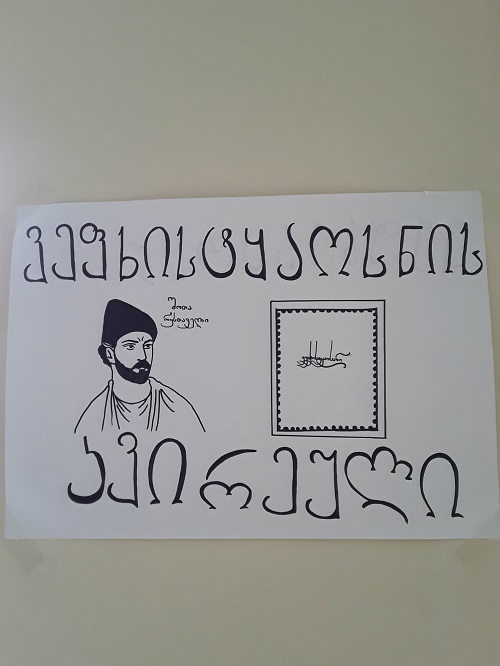 ვეფხისტყაოსნის
შოთა
რუსთაველი
ვეფხისტყაოსანი
კვირეული